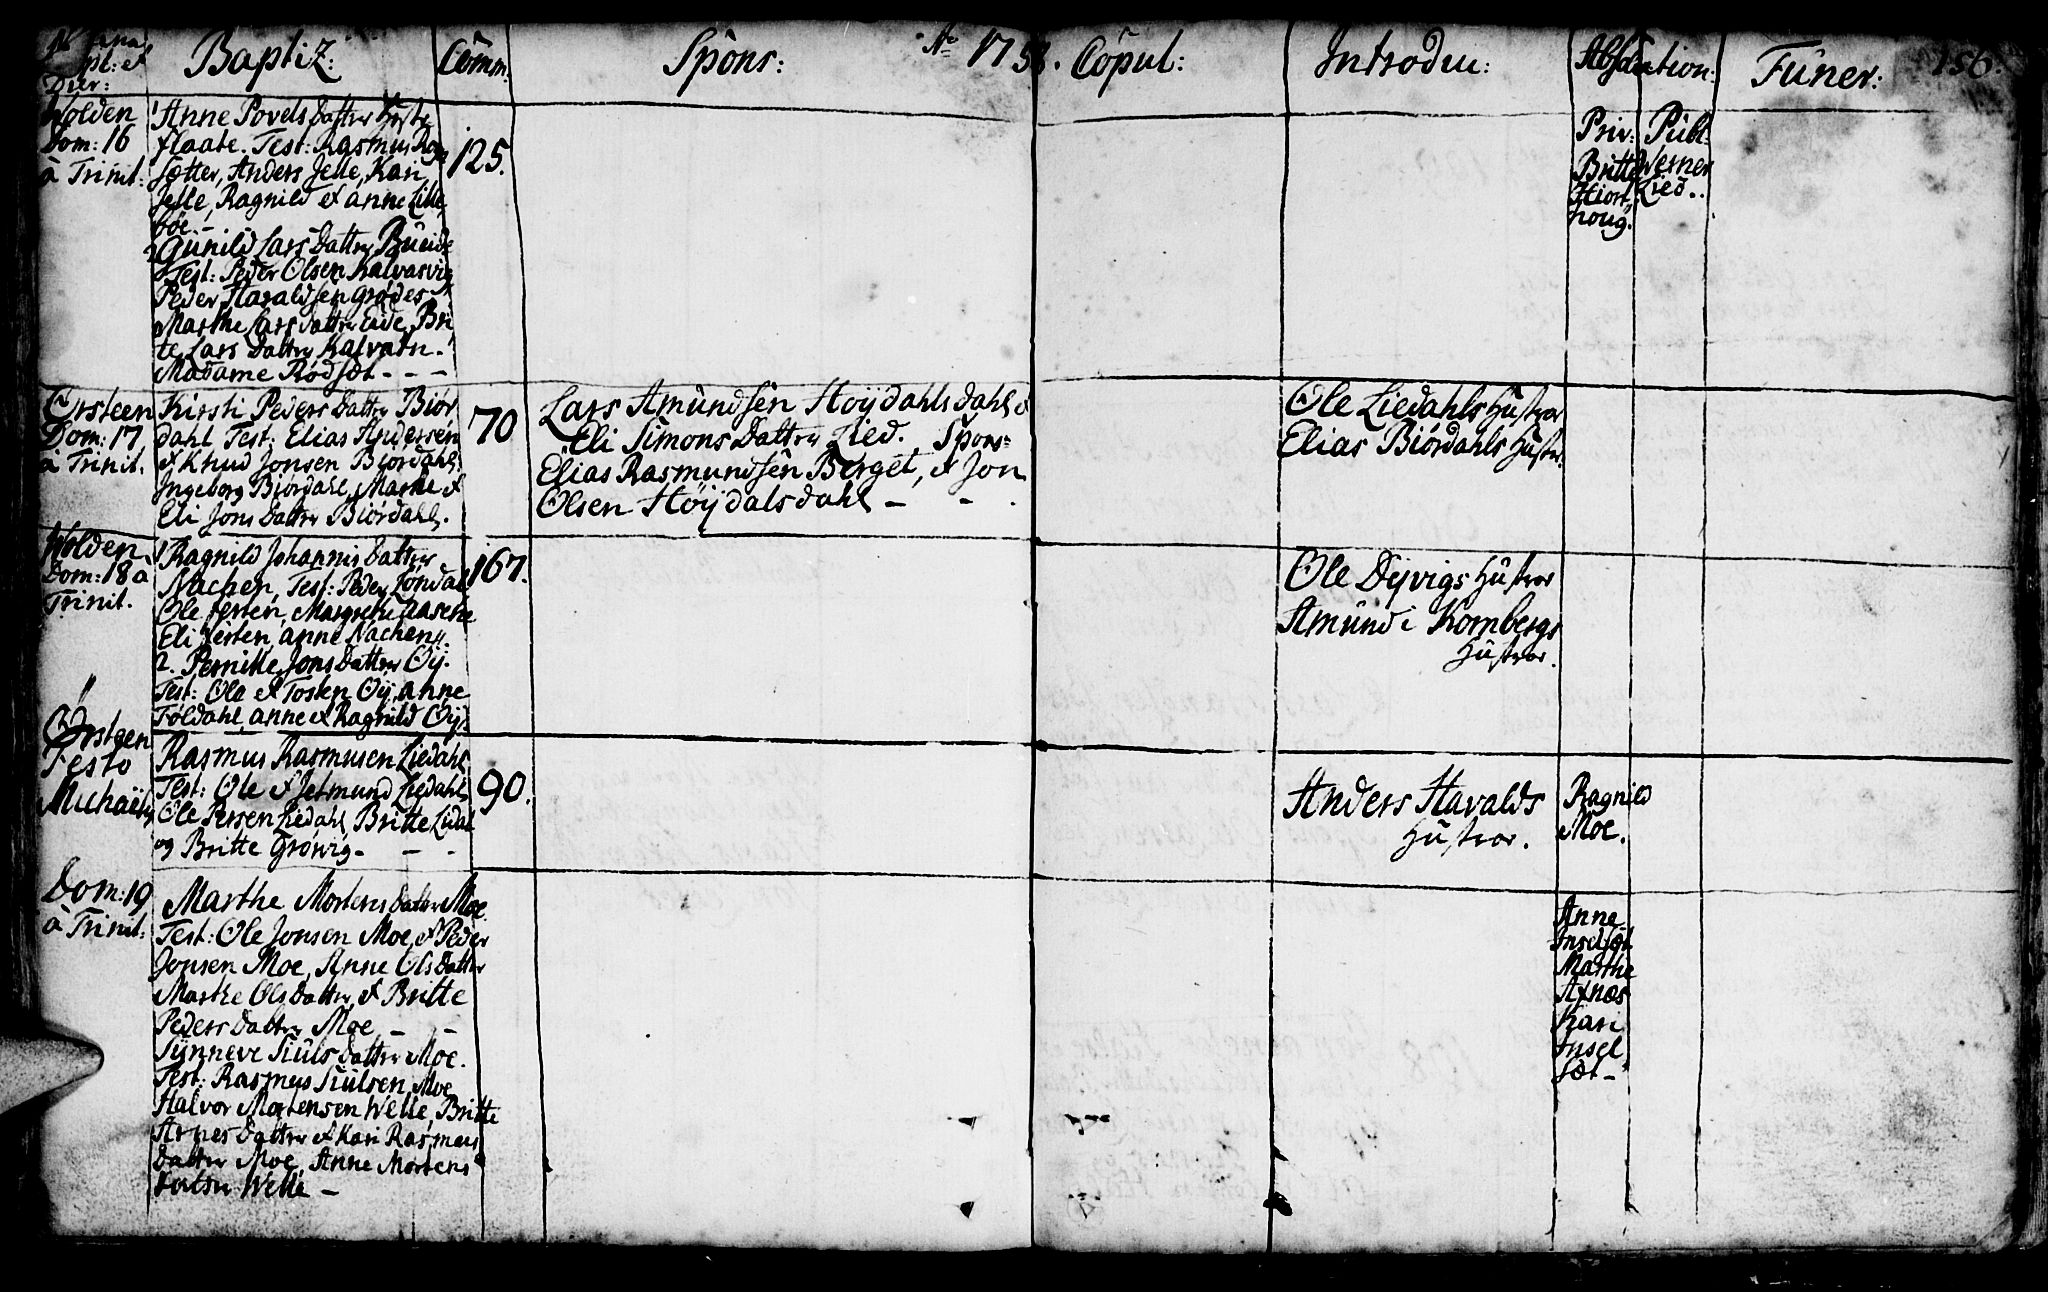 Baptiz: Comm: Spons: Aº 1758. Copul: Introdu: Absolution: Funer: 156.
Wolden
Dom: 16
à Trinit:
1 Anne Povels Datter
flaate. Test: Rasmus
sætter, Anders Jelle, Kari
Jelle, Ragnild et Anne Lille
bøe. -
2 Gunild Lars Datter Bueide
Test: Peder Olsen Kalvasvig
Peder Haraldsen Grødes
Marthe Lars datter Eide, Bri
te Lars Datter Kalvatn.
Madame Rødset - - -
125.
Priv:
Britte
Hiort
houg.
Publ:
Werner
Lied.
Ørsteen
Dom: 17
à Trinit.
Kirsti Peders Datter Biør
dahl Test: Elias Andersen
et Knud Jonsen Biørdahl
Ingeborg Biørdahl, Marthe et
Eli Jons Datter Biørdahl.
70
Lars Amundsen Høydahlsdahl et
Eli Simons Datter Lied. Spons:
Elias Rasmundsen Berget, et Jon
Olsen Høydalsdahl - -
Ole Liedahls Hustroe
Elias Biørdahls Hustr.
Wolden
Dom: 18 à
Trinit.
1 Ragnild Johannis Datter
Nachen, Test: Peder Løndal
Ole Jersten, Margrethe Aasehe
Eli Jersten, Anne Nachen
2. Pernille Jons Datter Øy.
Test: Ole et Tosten Øy, Anne
Foldahl, Anne et Ragnild Øy.
167.
Ole Dyvigs Hustroe
Amund i Kornbergs
Hustroe.
Ørsteen
Festo
Michaëlis
Rasmus Rasmusen Liedahl
Test: Ole et Jetmund Liedahl
Ole Persen Liedahl Britte Lidal
og Britte Grøvig - - -
90.
Anders Havalds
Hustroe.
Ragnild
Moe.
Dom: 19
à Trinit:
Marthe Mortens Datter Moe.
Test: Ole Jonsen Moe, et Peder
Jonsen Moe, Anne Ols Datter
Marthe Ols Datter, et Britte
Peders Datter Moe - -
Synneve Siuls Datter Moe.
Test: Rasmus Siulsen Moe
Halvor Mortensen Welle, Britte
Arnes Datter et Kari Rasmus
Datter Moe, Anne Mortens
Datter Welle -
Anne
Inselset
Marthe
Axnæs
Kari
Insel
set -